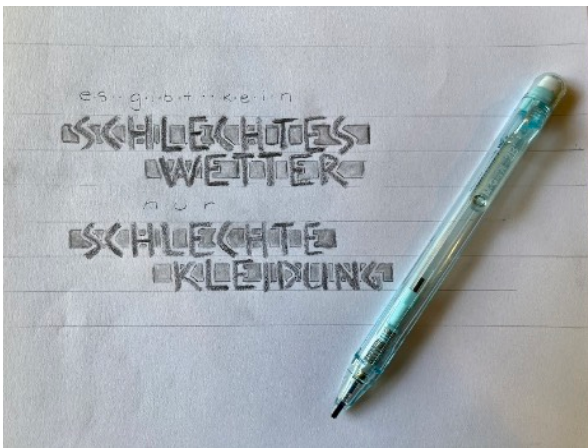 es gibt kein
SCHLECHTES
WETTER
nur
SCHLECHTE
KLEIDUNG